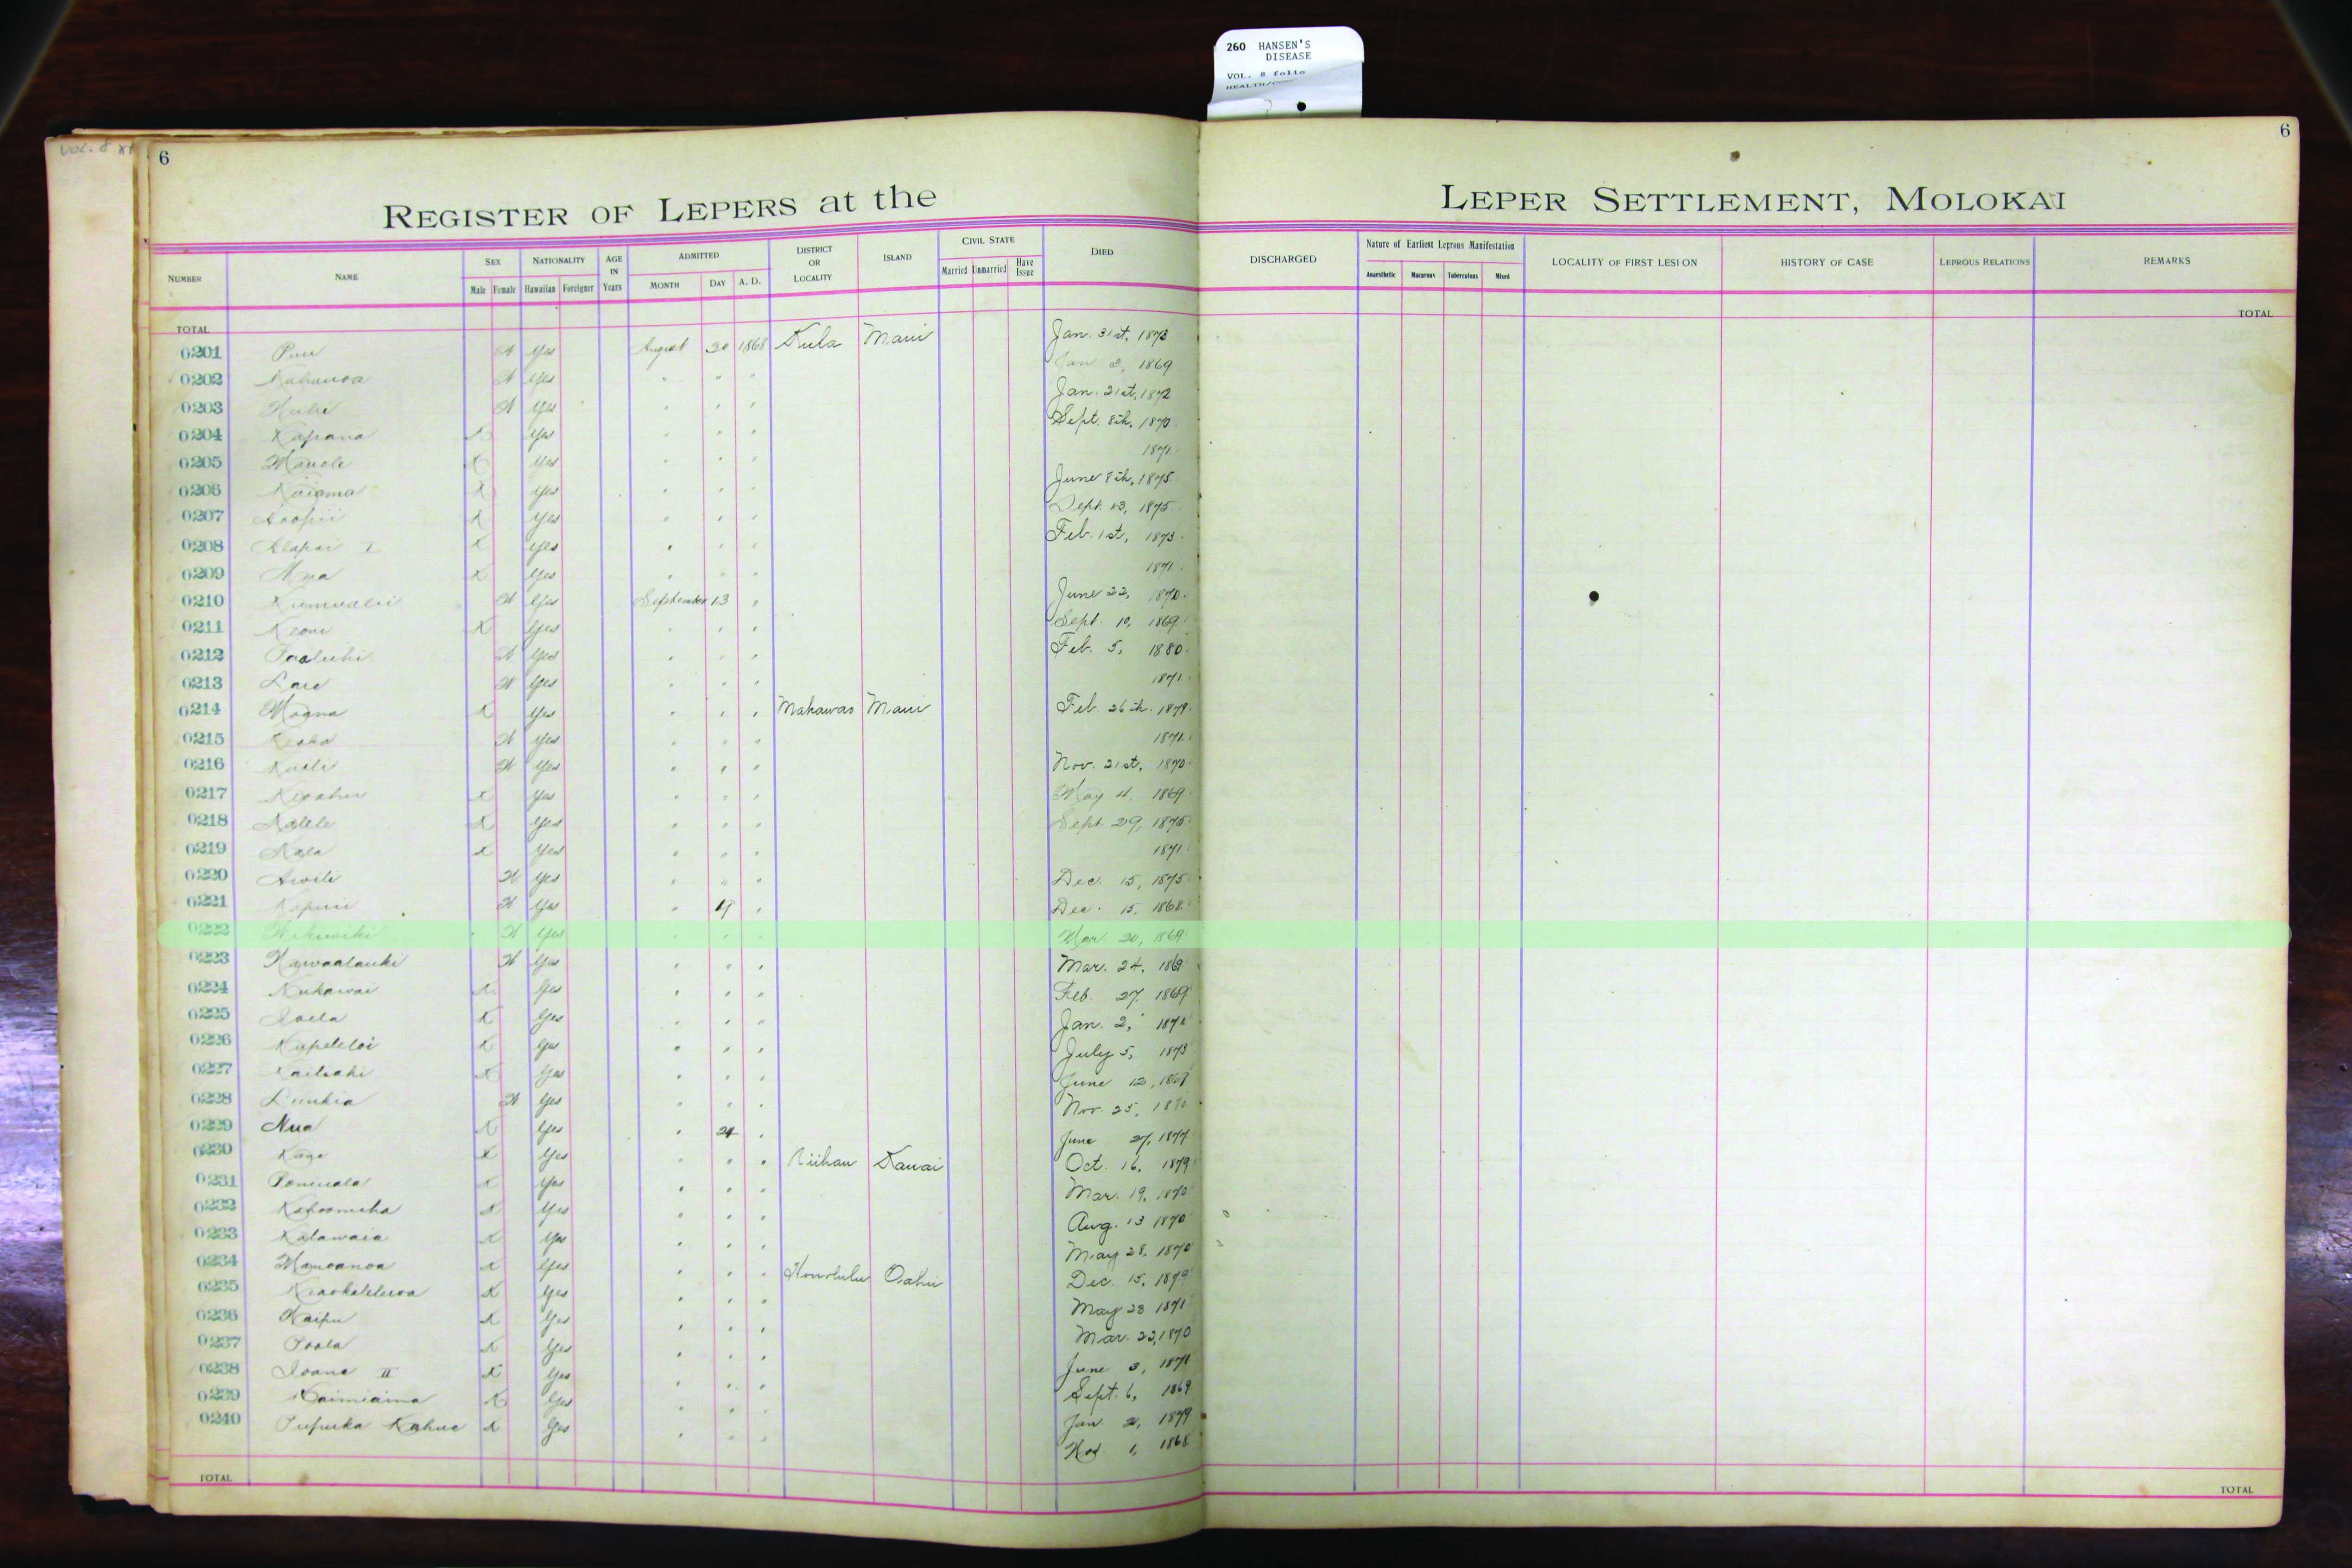 260 HANSEN'S
DISEASE
VOL. 8 folio
6 6
REGISTER OF LEPERS at the LEPER SETTLEMENT, MOLOKAI
NUMBER NAME SEX Male Female NATIONALITY Hawaiian Foreigner AGE IN Years ADMITTED MONTH DAY A. D. DISTRICT OR LOCALITY ISLAND CIVIL STATE Married Unmarried Have Issue DIED DISCHARGED Nature of Earliest Leprous Manifestation Anaesthetic Macurous Tuberculous Mixed LOCALITY OF FIRST LESION HISTORY OF CASE LEPROUS RELATIONS REMARKS
TOTAL TOTAL
0201 Yes August 20 1868 Kula Maui Jan. 31st, 1873
0202 Yes " " " Jan 2, 1869
0203 Yes " " " Jan. 21st, 1872
0204 Kapana X Yes " " " Sept. 8th, 1870
0205 Manole X Yes " " " 1871
0206 Naiama X Yes " " " June 8th, 1875
0207 Koopii X Yes " " " Sept. 13, 1875
0208 Alapai I X Yes " " " Feb. 1st, 1873
0209 X Yes " " " 1871
0210 Kumualii Yes September 13 " June 22, 1870
0211 Keoni X Yes " " " Sept. 10, 1869
0212 Paaluhi Yes " " " Feb. 5, 1880
0213 Yes " " " 1871
0214 Moana X Yes " " " Makawao Maui Feb. 26th. 1879
0215 Yes " " " 1871
0216 Kaili Yes " " " Nov. 21st, 1870
0217 X Yes " " " May 4, 1869
0218 X Yes " " " Sept. 29, 1875
0219 X Yes " " " 1871
0220 Yes " " " Dec. 15, 1875
0221 Yes " " Dec. 15, 1868
0222 Wikiwiki Yes " " " Mar. 20, 1869
0223 Kawaalauki Yes " " " Mar. 24,
0224 Nukawai X Yes " " " Feb. 27, 1869
0225 Ioela X Yes " " " Jan. 2,
0226 X Yes " " " July 5, 1873
0227 Kailiahi X Yes " " " June 12, 1869
0228 Yes " " " Nov. 25, 1870
0229 Nua X Yes " 24 " June 27, 1877
0230 X Yes " " " Niihau Kauai Oct. 16, 1879
0231 X Yes " " " Mar. 19, 1870
0232 X Yes " " " Aug. 13 1870
0233 Kalawaia X Yes " " " May 28, 1870
0234 Mamoanoa X Yes " " " Honolulu Oahu Dec. 15, 1879
0235 X Yes " " " May 28 1871
0236 Kaipu X Yes " " " Mar. 22, 1870
0237 Poola X Yes " " " June 3, 1871
0238 Ioane II X Yes " " " Sept. 6, 1869
0239 Kaimiaina X Yes " " " Jan 2, 1879
0240 Pupuka Kahue X Yes " " " Nov 1, 1868
TOTAL TOTAL